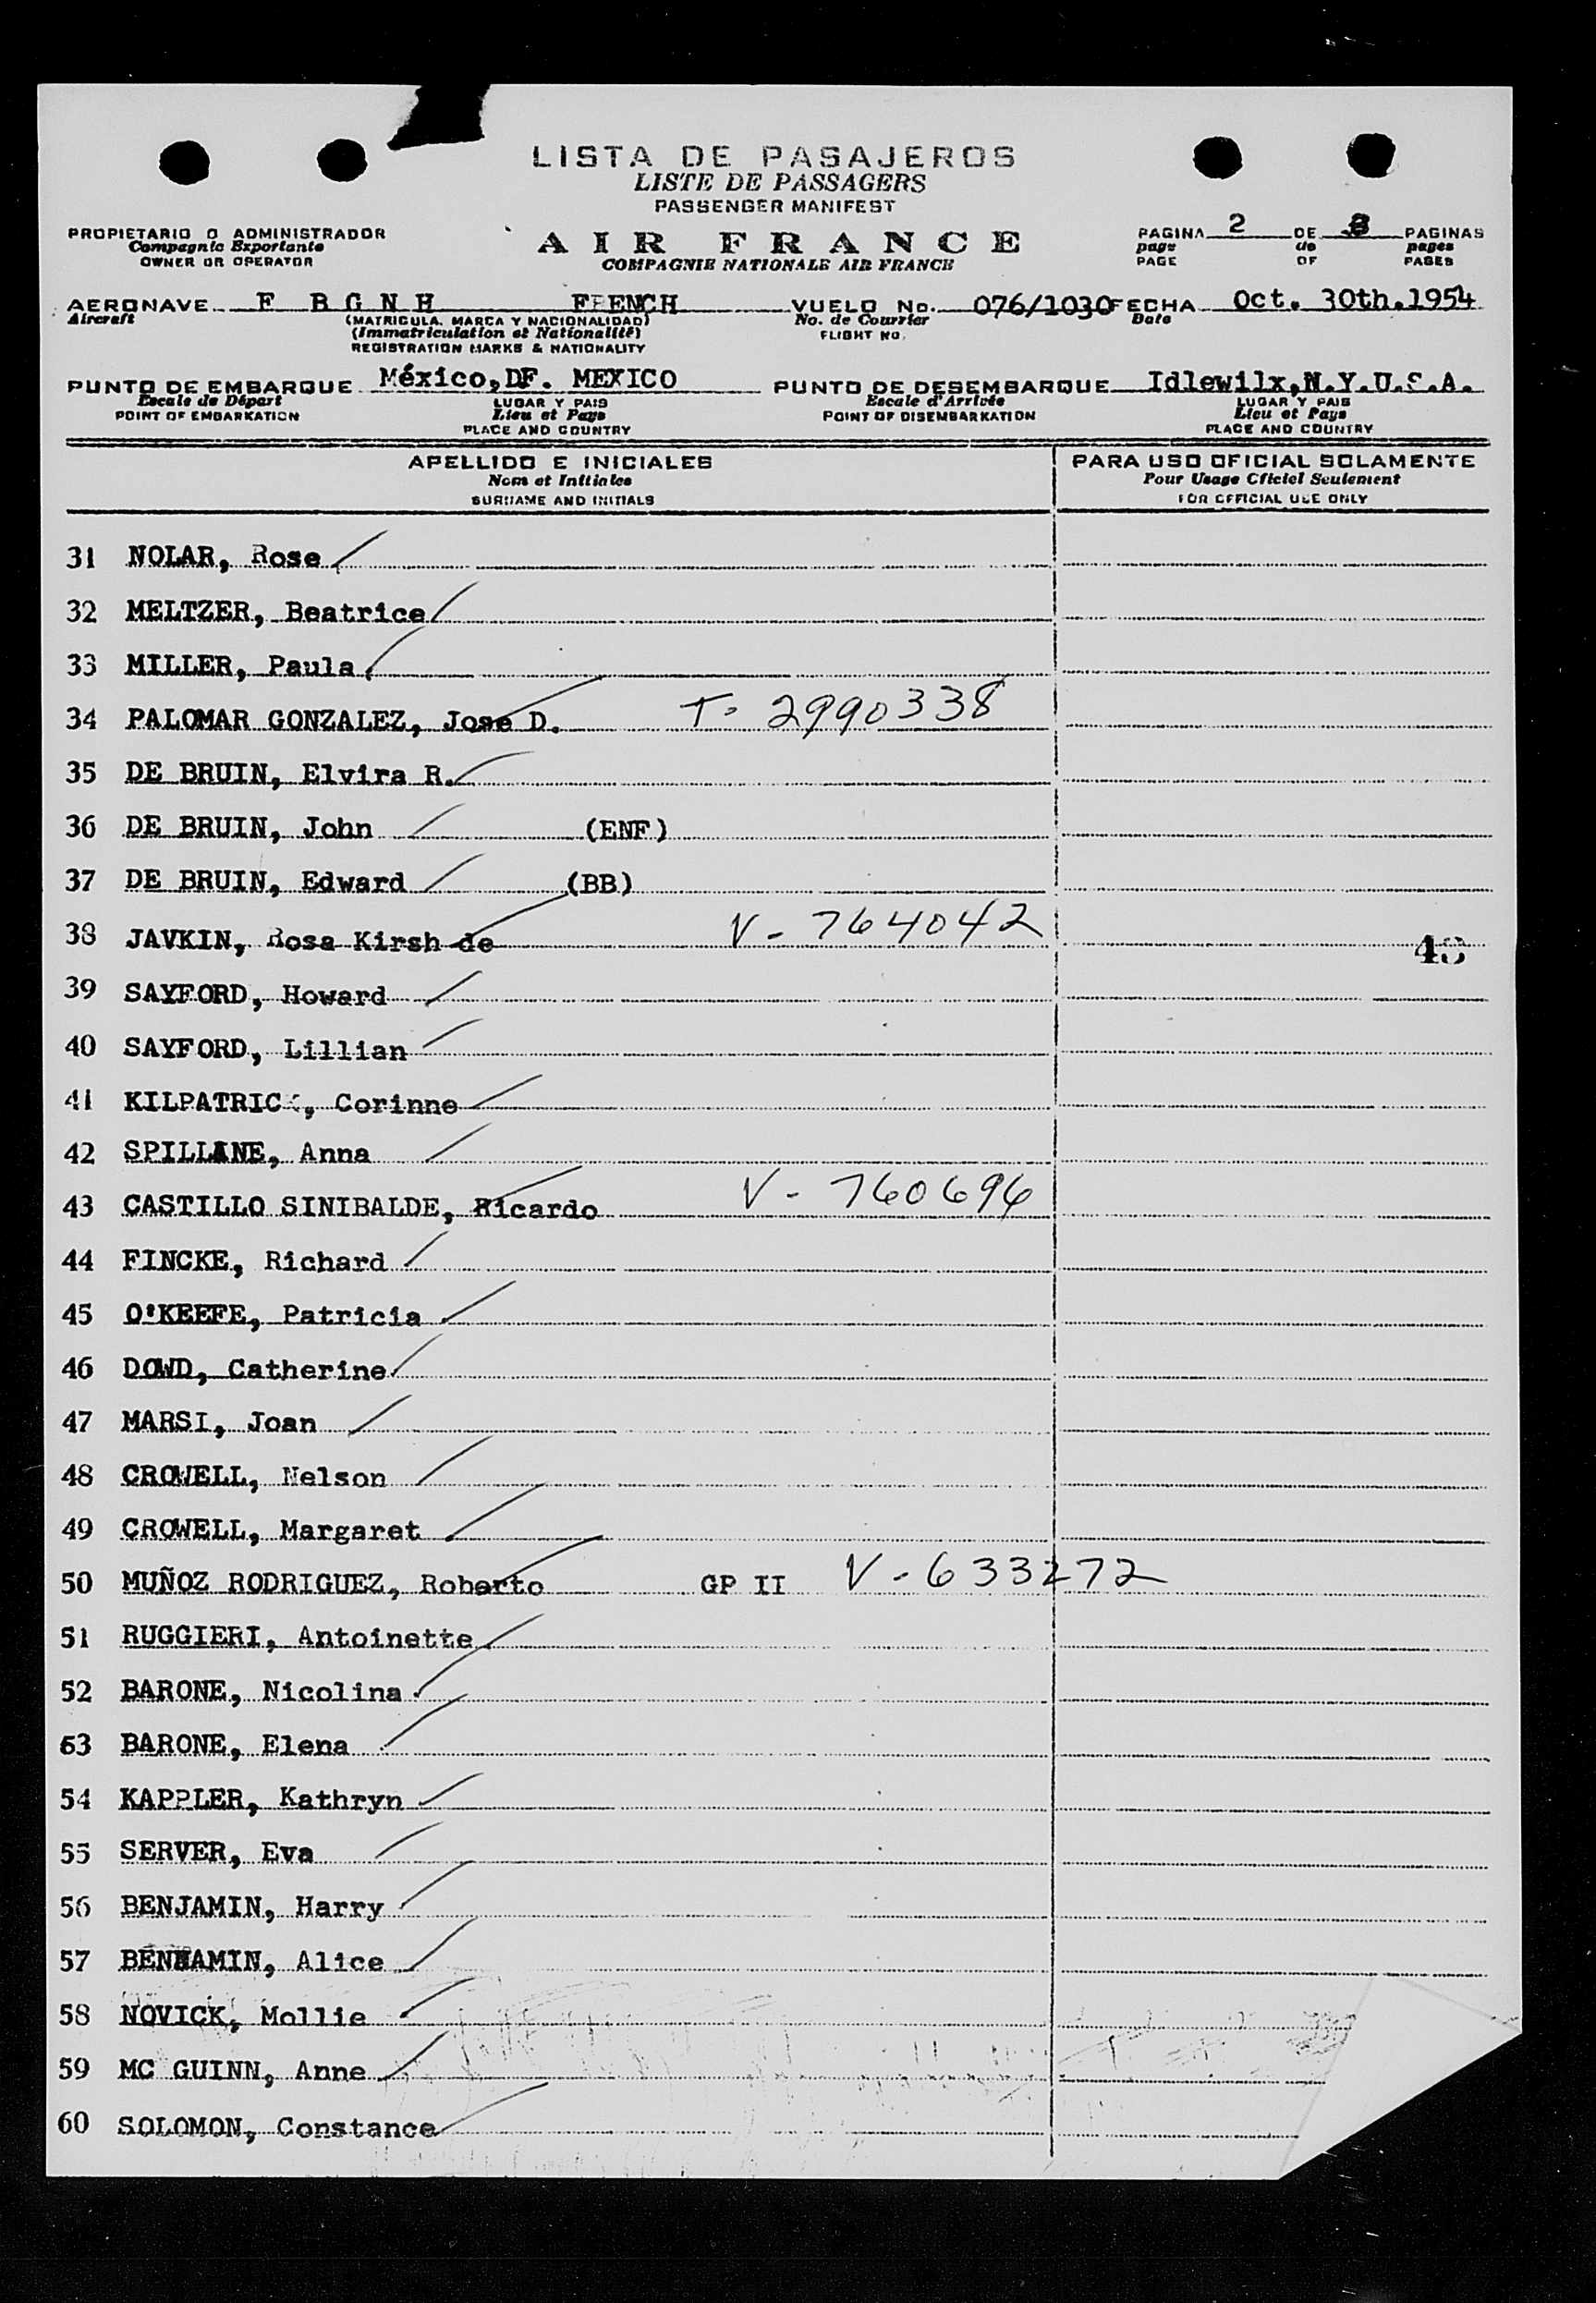 LISTA DE PASAJEROS
LISTE DE PASSAGERS
PASSENGER MANIFEST
PROPIETARIO O ADMINISTRADOR
Compagnie Exportante
OWNER OR OPERATOR
AIR FRANCE
COMPAGNIE NATIONALE AIR FRANCE
PAGINA 2 DE PAGINAS
page de pages
PAGE OF PAGES
AERONAVE F B G N H FRENCH VUELO No. 076/1030 FECHA Oct. 30th.1954
Aircraft (MATRICULA, MARCA Y NACIONALIDAD) No. de Courrier Date
(Immatriculation et Nationalité) FLIGHT NO.
REGISTRATION MARKS & NATIONALITY
PUNTO DE EMBARQUE México,DF. MEXICO PUNTO DE DESEMBARQUE Idlewilx,N.Y.U.S.A.
Escale de Départ LUGAR Y PAIS Escale d'Arrivée LUGAR Y PAIS
POINT OF EMBARKATION Lieu et Pays POINT OF DISEMBARKATION Lieu et Pays
PLACE AND COUNTRY PLACE AND COUNTRY
APELLIDO E INICIALES PARA USO OFICIAL SOLAMENTE
Nom et Initiales Pour Usage Officiel Seulement
SURNAME AND INITIALS FOR OFFICIAL USE ONLY
31 NOLAR, Rose
32 MELTZER, Beatrice
33 MILLER, Paula
34 PALOMAR GONZALEZ, Jose D. T- 2990338
35 DE BRUIN, Elvira R.
36 DE BRUIN, John (ENF)
37 DE BRUIN, Edward (BB)
38 JAVKIN, Rosa Kirsh de V- 764042
39 SAYFORD, Howard
40 SAYFORD, Lillian
41 KILPATRICK, Corinne
42 SPILLANE, Anna
43 CASTILLO SINIBALDE, Ricardo V- 760696
44 FINCKE, Richard
45 O'KEEFE, Patricia
46 DOWD, Catherine
47 MARSI, Joan
48 CROWELL, Nelson
49 CROWELL, Margaret
50 MUÑOZ RODRIGUEZ, Roberto GP II V-633272
51 RUGGIERI, Antoinette
52 BARONE, Nicolina
53 BARONE, Elena
54 KAPPLER, Kathryn
55 SERVER, Eva
56 BENJAMIN, Harry
57 BENJAMIN, Alice
58 NOVICK, Mollie
59 MC GUINN, Anne
60 SOLOMON, Constance